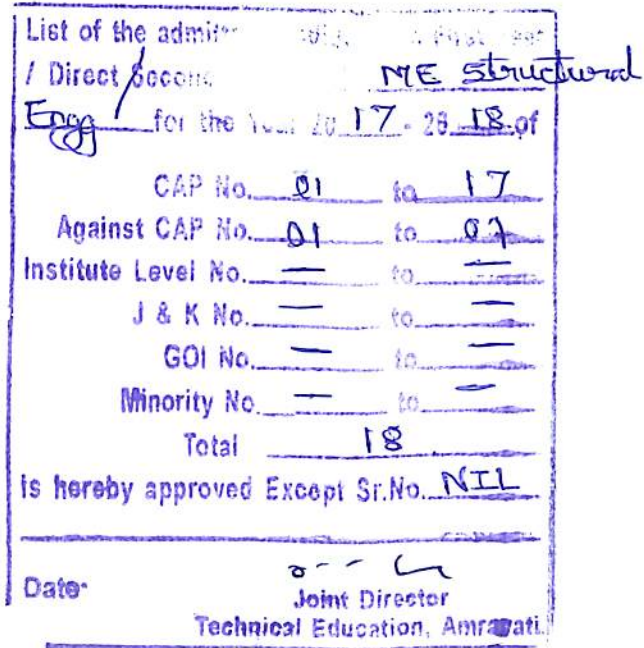 List of the
/ Direct Second ME Structural
Engg for the Year 20 17 - 20 18 of
CAP No. 01 to 17
Against CAP No. 01 to 01
Institute Level No. — to —
J & K No. — to —
GOI No. — to —
Minority No. — to —
Total 18
is hereby approved Except Sr.No. NIL
Date
Joint Director
Technical Education, Amravati.